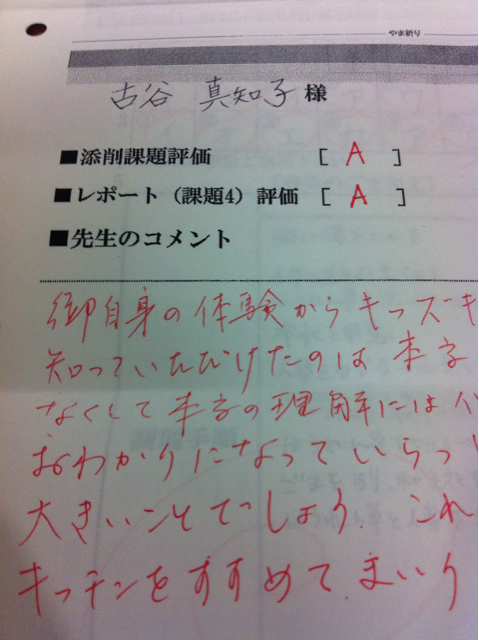 やま折り
古谷 真知子 様
■添削課題評価 [ A ]
■レポート（課題4）評価 [ A ]
■先生のコメント
御自身の体験からキッズキ
知っていただけたのは本字
なくして本字の理解には
おわかりになっていらっし
大きいことでしょう。これ
キッチンをすすめてまいり